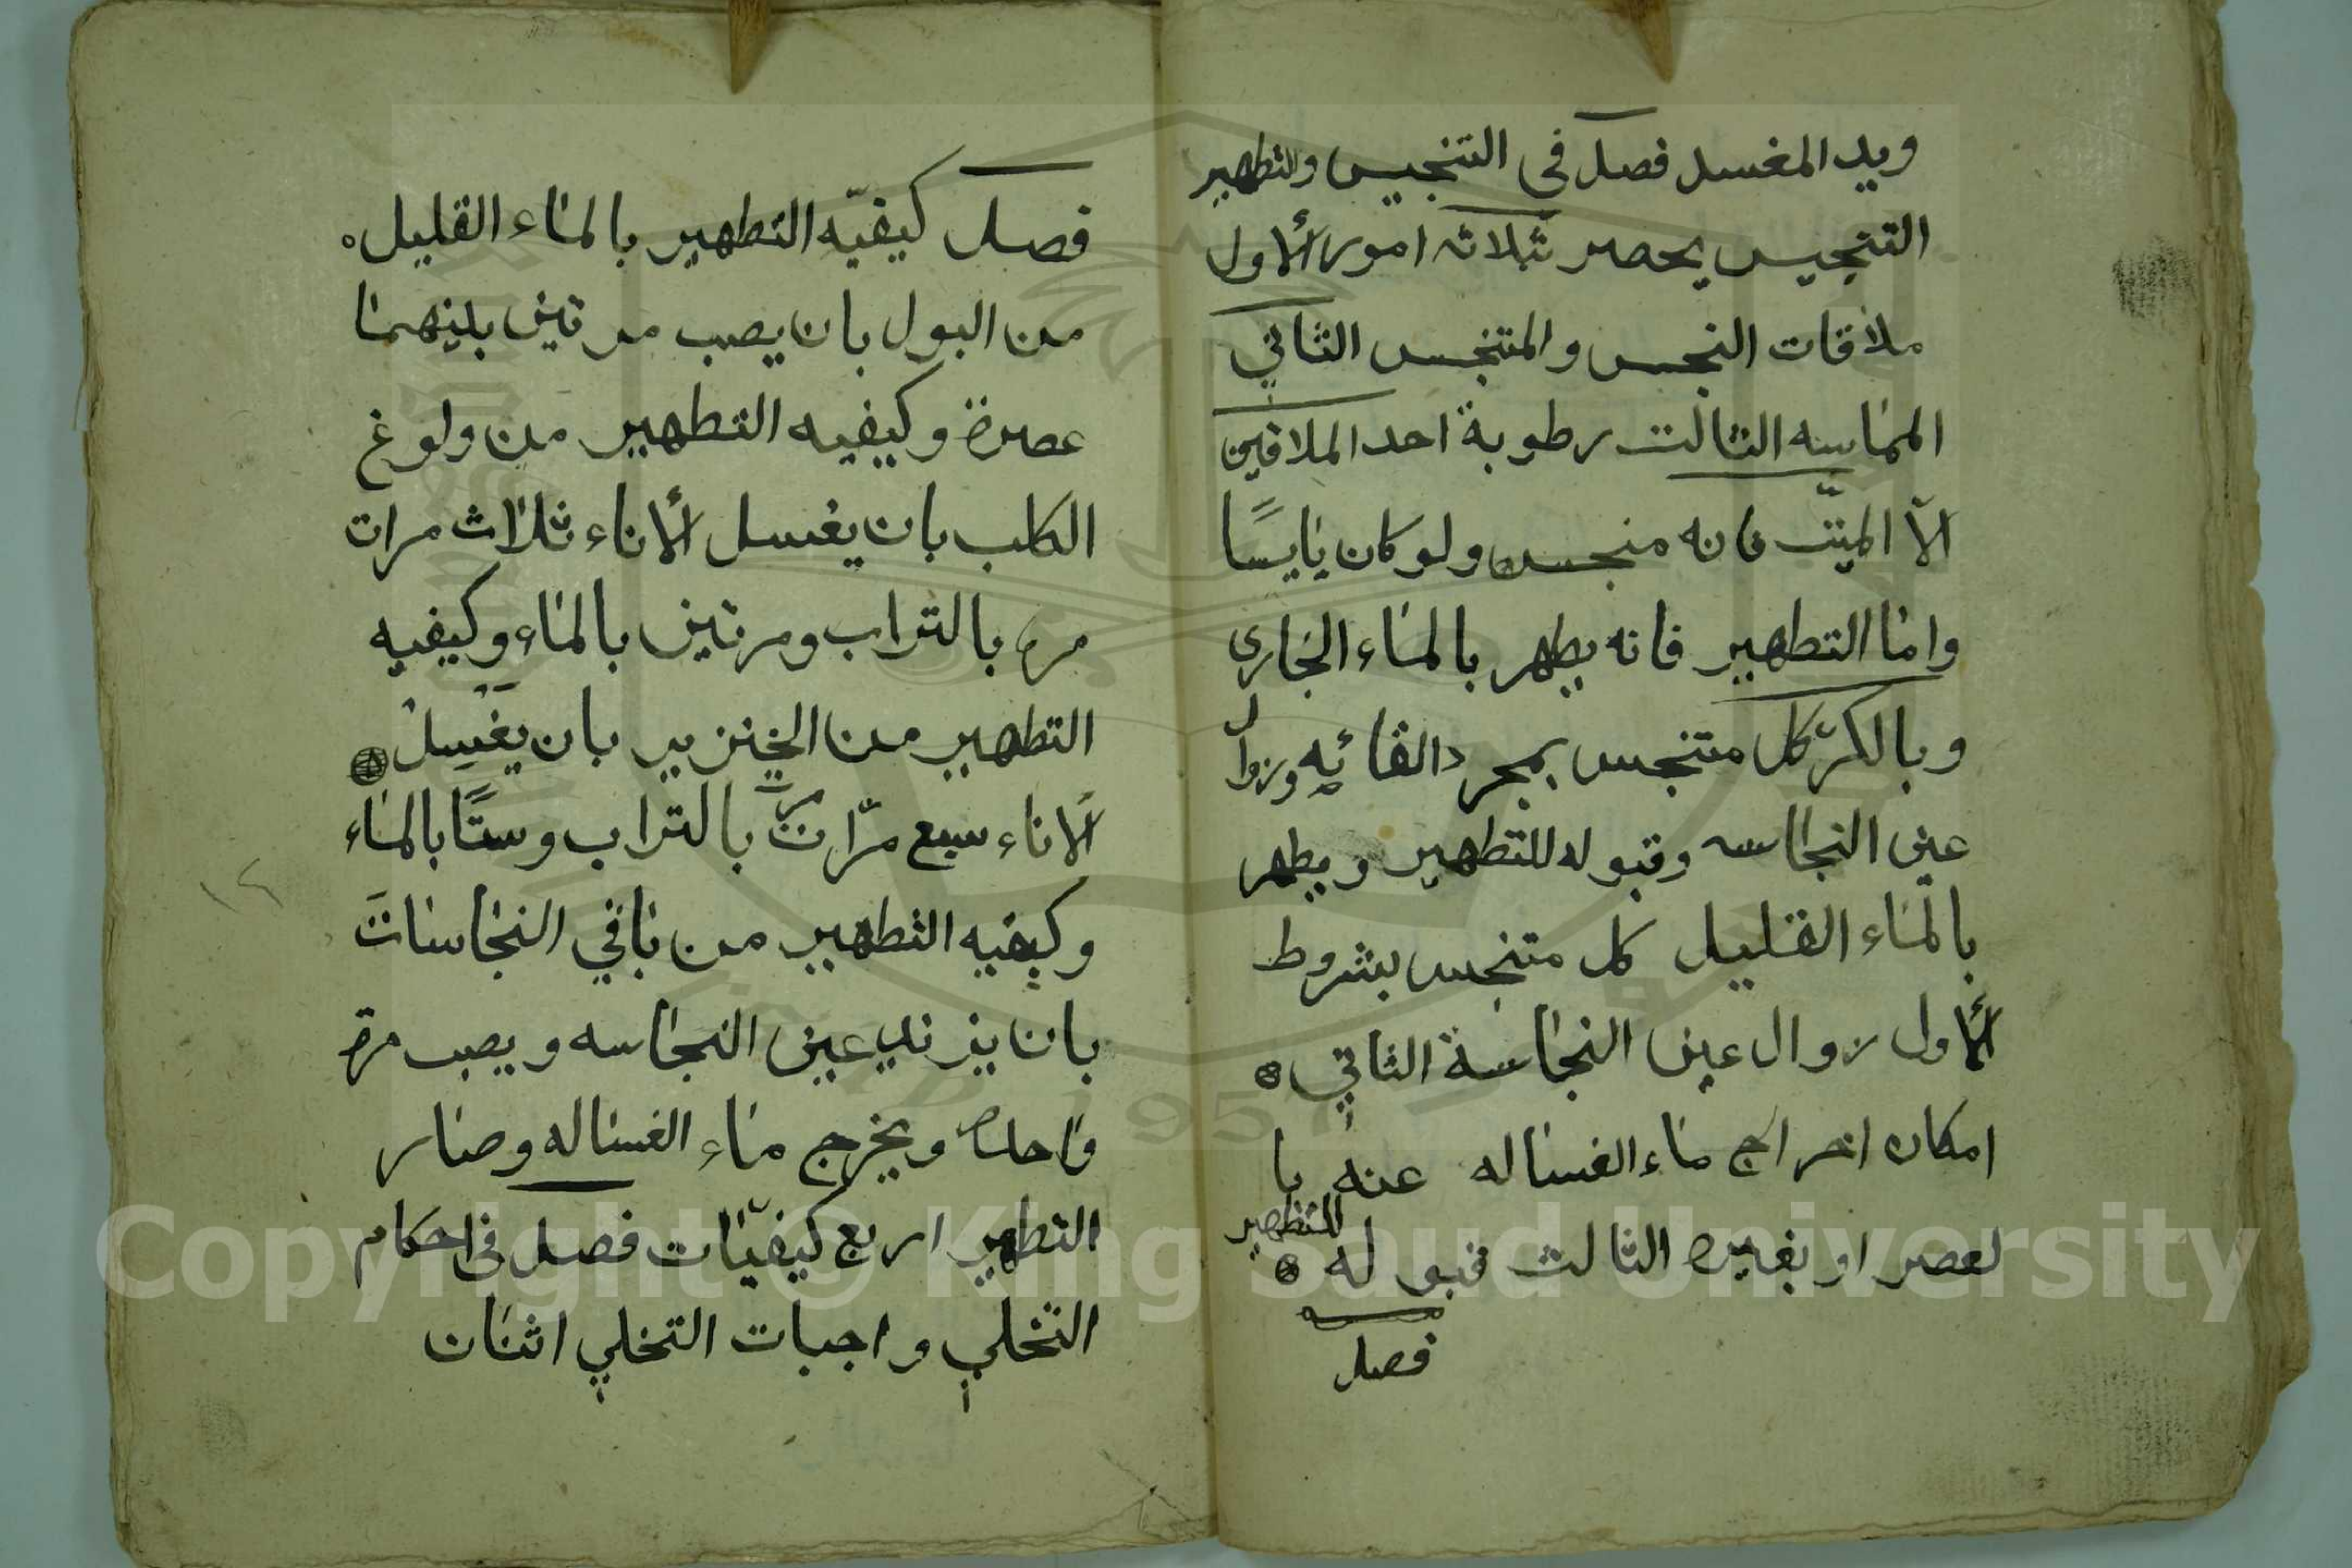 ويد المغسل فصل في التنجيس والتطهير
التنجيس يحصر بثلاثه امور الأول
ملاقات النجس والمتنجس الثاني
المماسه الثالث رطوبة احد الملاقين
الّا الميّت فانه منجس ولو كان يابسًا
واما التطهير فانه يطهر بالماء الجاري
وبالكرّ كل متنجس بمجرد القائه وزوال
عين النجاسه وقبوله للتطهير ويطهر
بالماء القليل كل متنجس بشروط
الأول زوال عين النجاسة الثاني
امكان اخراج ماء الغساله عنه با
لعصر او بغيره الثالث قبوله للتطهير
فصل
فصل كيفيّه التطهير بالماء القليل
من البول بان يصب مرتين بينهما
عصرة وكيفيه التطهير من ولوغ
الكلب بان يغسل الأناء ثلاث مرات
مره بالتراب ومرتين بالماء وكيفيه
التطهير من الخنزير بان يغسل
الأناء سبع مرّات مرّة بالتراب وستًا بالماء
وكيفيه التطهير من باقي النجاسات
بان يزيد عين النجاسه ويصب مرة
واحده ويخرج ماء الغساله وصار
التطهير اربع كيفيّات فصل في احكام
التخلي واجبات التخلي اثنان
١٢
Copyright © King Saud University
1957